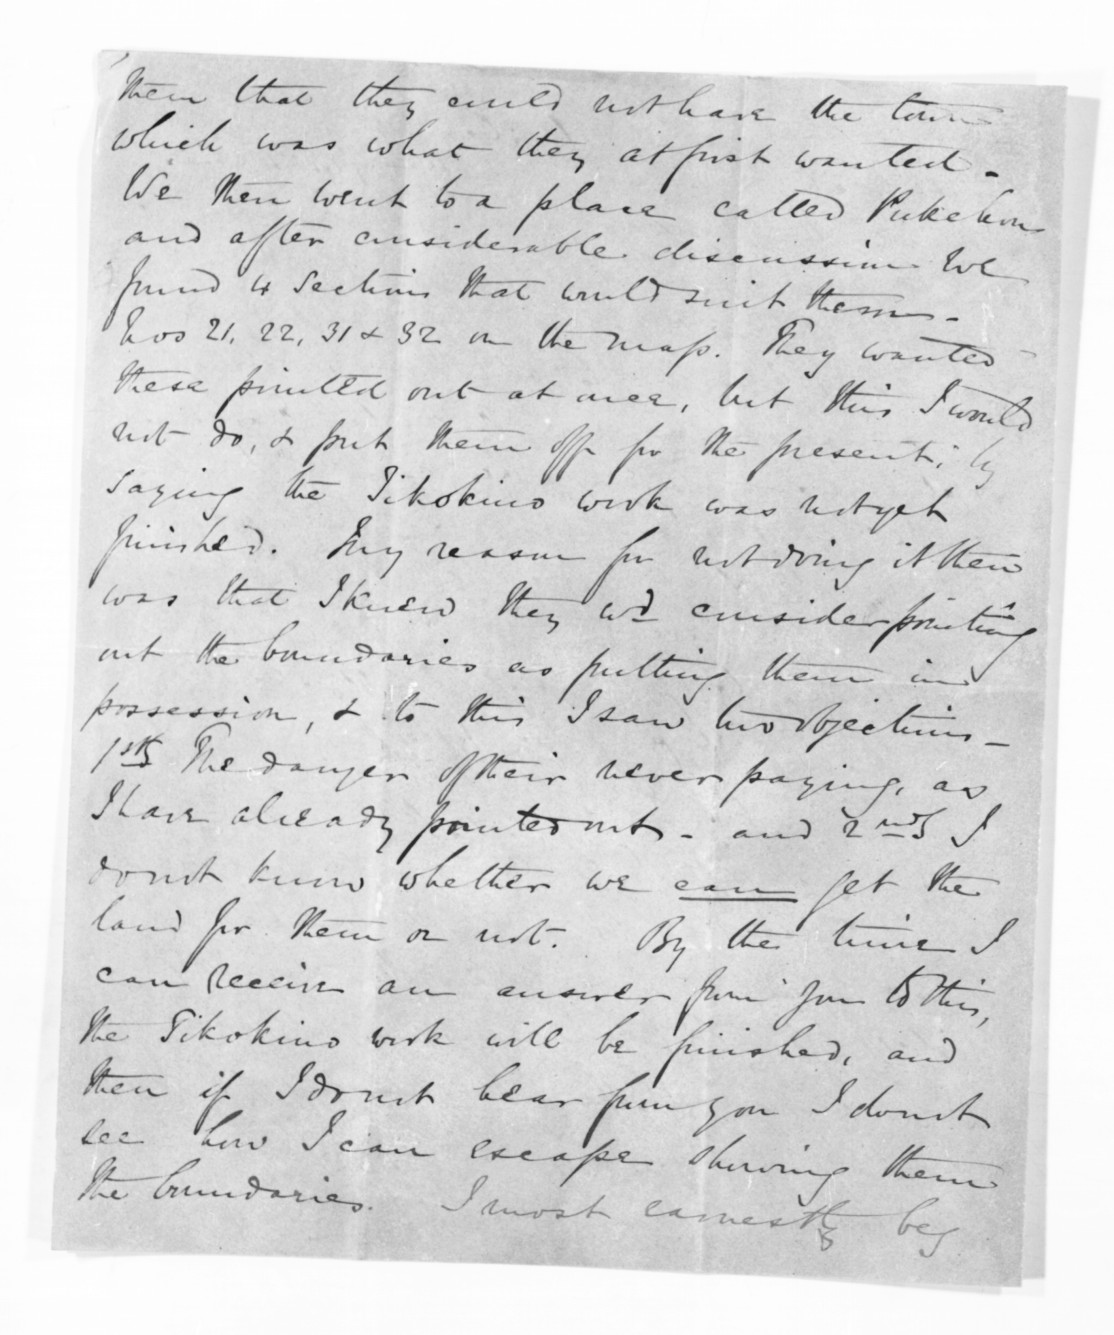 them that they could not have the town
which was what they at first wanted -
We then went to a place called Pukehou
and after considerable discussion we
found 4 sections that would suit them -
Nos 21, 22, 31 & 32 on the map. They wanted
these pointed out at once, but this I would
not do, & put them off for the present, by
saying the Tikokino work was not yet
finished. My reason for not doing it then
was that I knew they wd consider pointing
out the boundaries as putting them in
possession, & to this I saw two objections -
1stly The danger of their never paying, as
I have already pointed out - and 2ndly I
do not know whether we can get the
land for them or not. By the time I
can receive an answer from you to this,
the Tikokino work will be finished, and
then if I do not hear from you I do not
see how I can escape showing them
the boundaries. I most earnestly beg